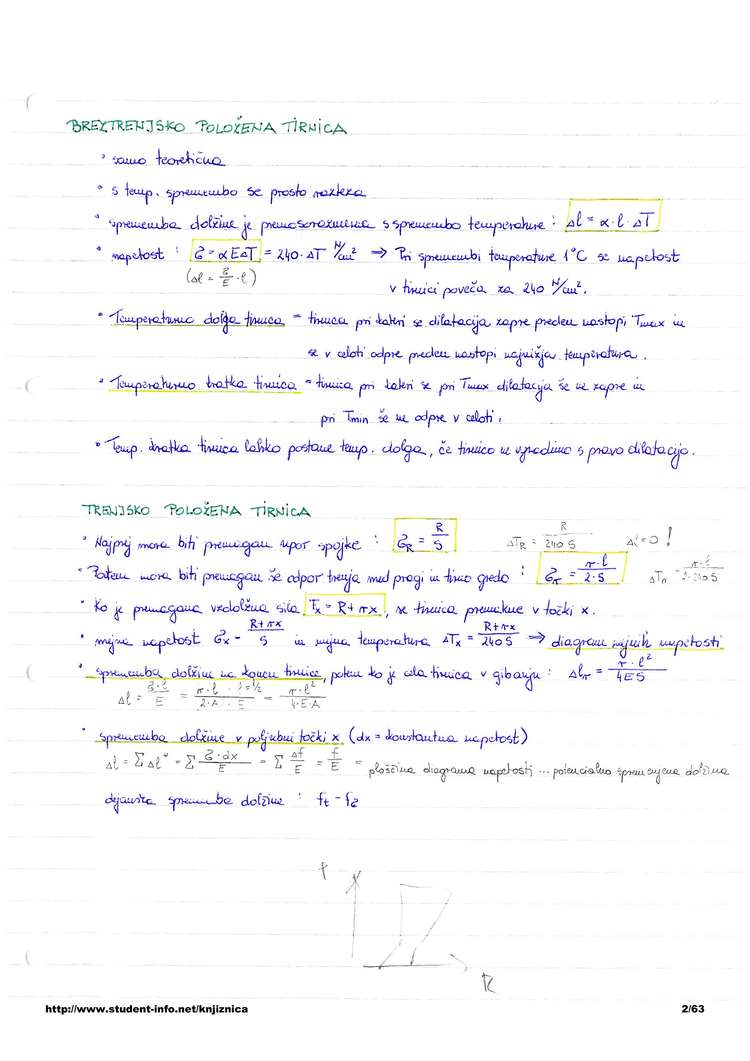 BREZTRENJSKO POLOŽENA TIRNICA
• samo teoretična
• s temp. spremembo se prosto razteza
• sprememba dolžine je premosorazmerna s spremembo temperature : Δl = α·l·ΔT
• napetost : σ = αEΔT = 240·ΔT N/cm² → Pri spremembi temperature 1°C se napetost
(Δl = σ/E · l) v tirnici poveča za 240 N/cm².
• Temperaturno dolga tirnica = tirnica pri kateri se dilatacija zapre preden nastopi Tmax in
se v celoti odpre preden nastopi najnižja temperatura.
• Temperaturno kratka tirnica = tirnica pri kateri se pri Tmax dilatacija še ne zapre in
pri Tmin še ne odpre v celoti.
• Temp. kratka tirnica lahko postane temp. dolga, če tirnico ne vgradimo s pravo dilatacijo.
TRENJSKO POLOŽENA TIRNICA
• Najprej mora biti premagan upor spojke : σR = R/S ΔTR = R/240 S Δl=0 !
• Potem mora biti premagan še odpor trenja med pragi in tirno gredo : σr = r·l/2·S ΔTr = r·l/2·240S
• Ko je premagana vzdolžna sila Fx = R + rx, se tirnica premakne v točki x.
• mejna napetost σx = R+rx/S in mejna temperatura ΔTx = R+rx/240 S → diagram mejnih napetosti
• sprememba dolžine na koncu tirnice, potem ko je cela tirnica v gibanju : Δlr = r·l²/4ES
Δl = σ·l/E = r·l · l=l/2 /2·A · E = r·l²/4·E·A
• sprememba dolžine v poljubni točki x (dx = konstantna napetost)
Δl = ΣΔl* = Σ σ·dx/E = Σ Δf/E = f/E = ploščina diagrama napetosti ... potencialno spremenjena dolžina
dejanska sprememba dolžine : ft - fσ
R
http://www.student-info.net/knjiznica 2/63